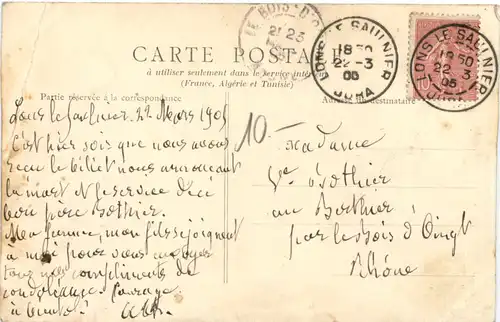 CARTE POSTALE
à utiliser seulement dans le service intérieur
(France, Algérie et Tunisie)
Partie réservée à la correspondance
Adresse du destinataire
LE BOIS-D'O
21 23
LONS LE SAULNIER
18 50
22 - 3
05
JURA
LONS LE SAULNIER
18 50
22 - 3
05
JURA
10
Lons le Saulnier 22 Mars 1905
C'est hier soir que nous avons
reçu le billet nous annonçant
la mort et le service de ce
bon père Bothier.
Ma femme, mon fils se joignent
à moi pour vous envoyer
tous mes compliments de
condoléance. Courage
à bientôt!
10 -
Madame
Ve Bothier
au
par le Bois d'Oingt
Rhône